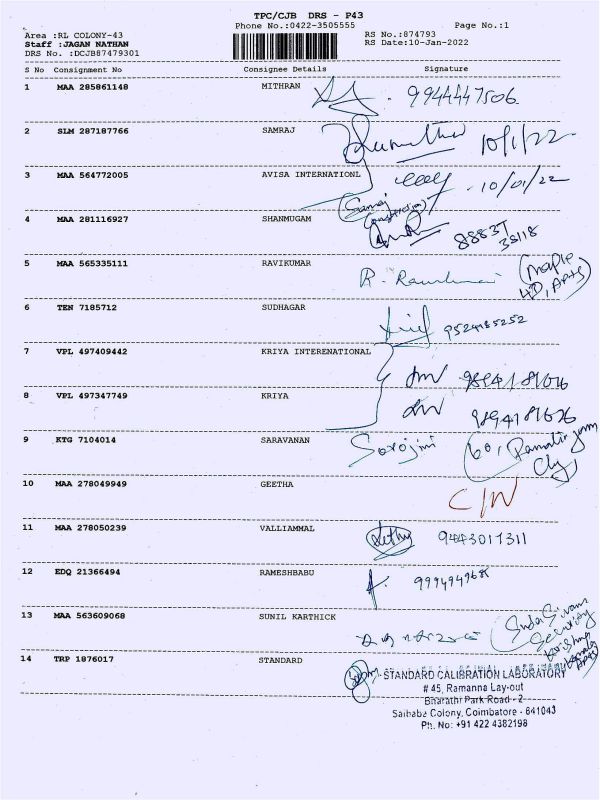 TPC/CJB DRS - P43
Phone No.:0422-3505555 Page No.:1
Area :RL COLONY-43 RS No.:874793
Staff :JAGAN NATHAN RS Date:10-Jan-2022
DRS No. :DCJB87479301
S No Consignment No Consignee Details Signature
1 MAA 285861148 MITHRAN 9944447506
2 SLM 287187766 SAMRAJ 10/1/22
3 MAA 564772005 AVISA INTERNATIONL 10/01/22
4 MAA 281116927 SHANMUGAM
5 MAA 565335111 RAVIKUMAR (Maple
6 TEN 7185712 SUDHAGAR 9524185252
7 VPL 497409442 KRIYA INTERENATIONAL
8 VPL 497347749 KRIYA
9 KTG 7104014 SARAVANAN Sarojini 60,
10 MAA 278049949 GEETHA C/N
11 MAA 278050239 VALLIAMMAL 9443017311
12 EDQ 21366494 RAMESHBABU
13 MAA 563609068 SUNIL KARTHICK
14 TRP 1876017 STANDARD
STANDARD CALIBRATION LABORATORY
# 45, Ramanna Lay-out
Bharathi Park Road - 2
Saibaba Colony, Coimbatore - 641043
Ph. No: +91 422 4382198